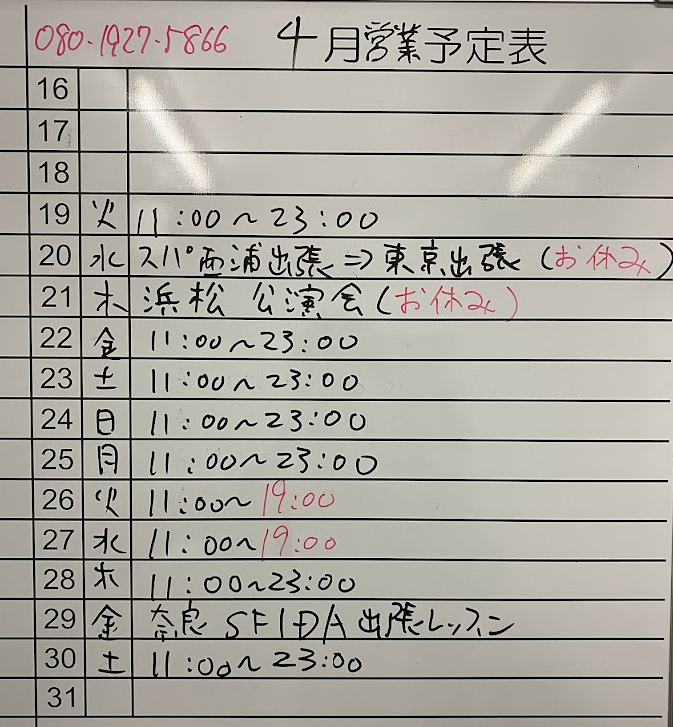 080-1927-5866 4月営業予定表
16
17
18
19 火 11:00~23:00
20 水 スパ西浦出張⇒東京出張(お休み)
21 木 浜松 公演会(お休み)
22 金 11:00~23:00
23 土 11:00~23:00
24 日 11:00~23:00
25 月 11:00~23:00
26 火 11:00~19:00
27 水 11:00~19:00
28 木 11:00~23:00
29 金 奈良 SFIDA 出張レッスン
30 土 11:00~23:00
31